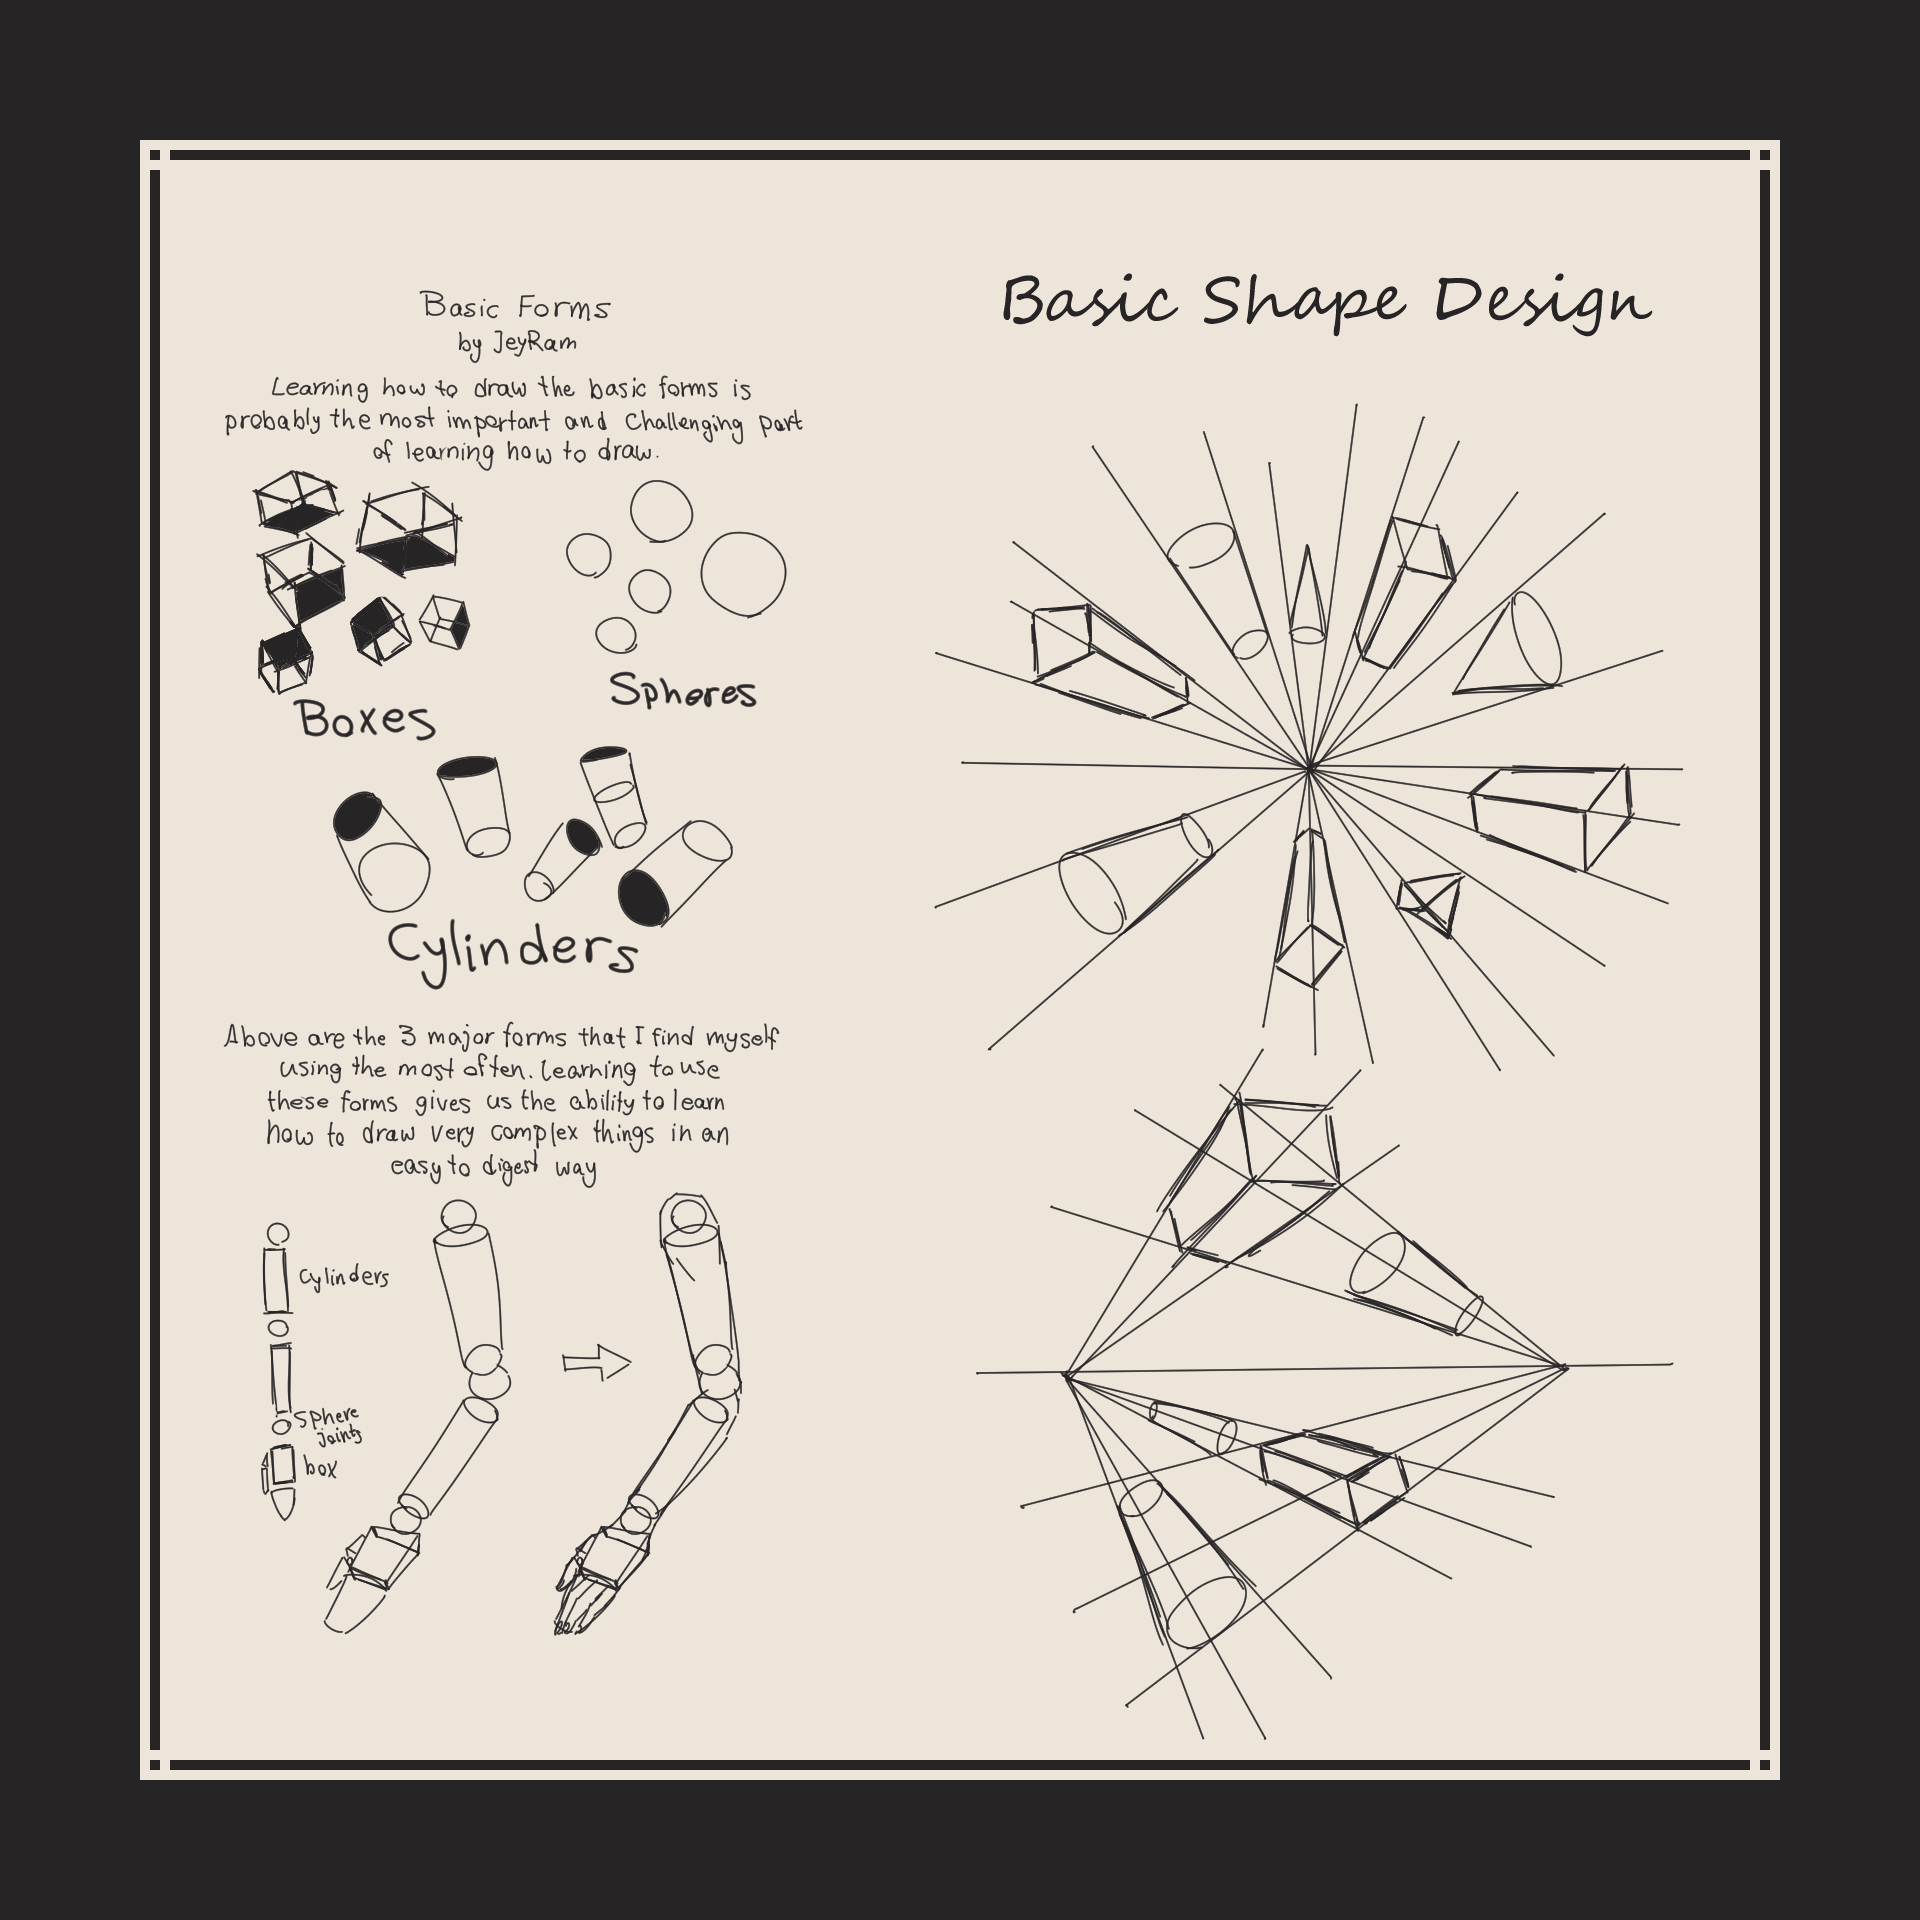 Basic Shape Design
Basic Forms
by JeyRam
Learning how to draw the basic forms is
probably the most important and challenging part
of learning how to draw.
Boxes
Spheres
Cylinders
Above are the 3 major forms that I find myself
using the most often. Learning to use
these forms gives us the ability to learn
how to draw very complex things in an
easy to digest way
Cylinders
Sphere
Joints
box